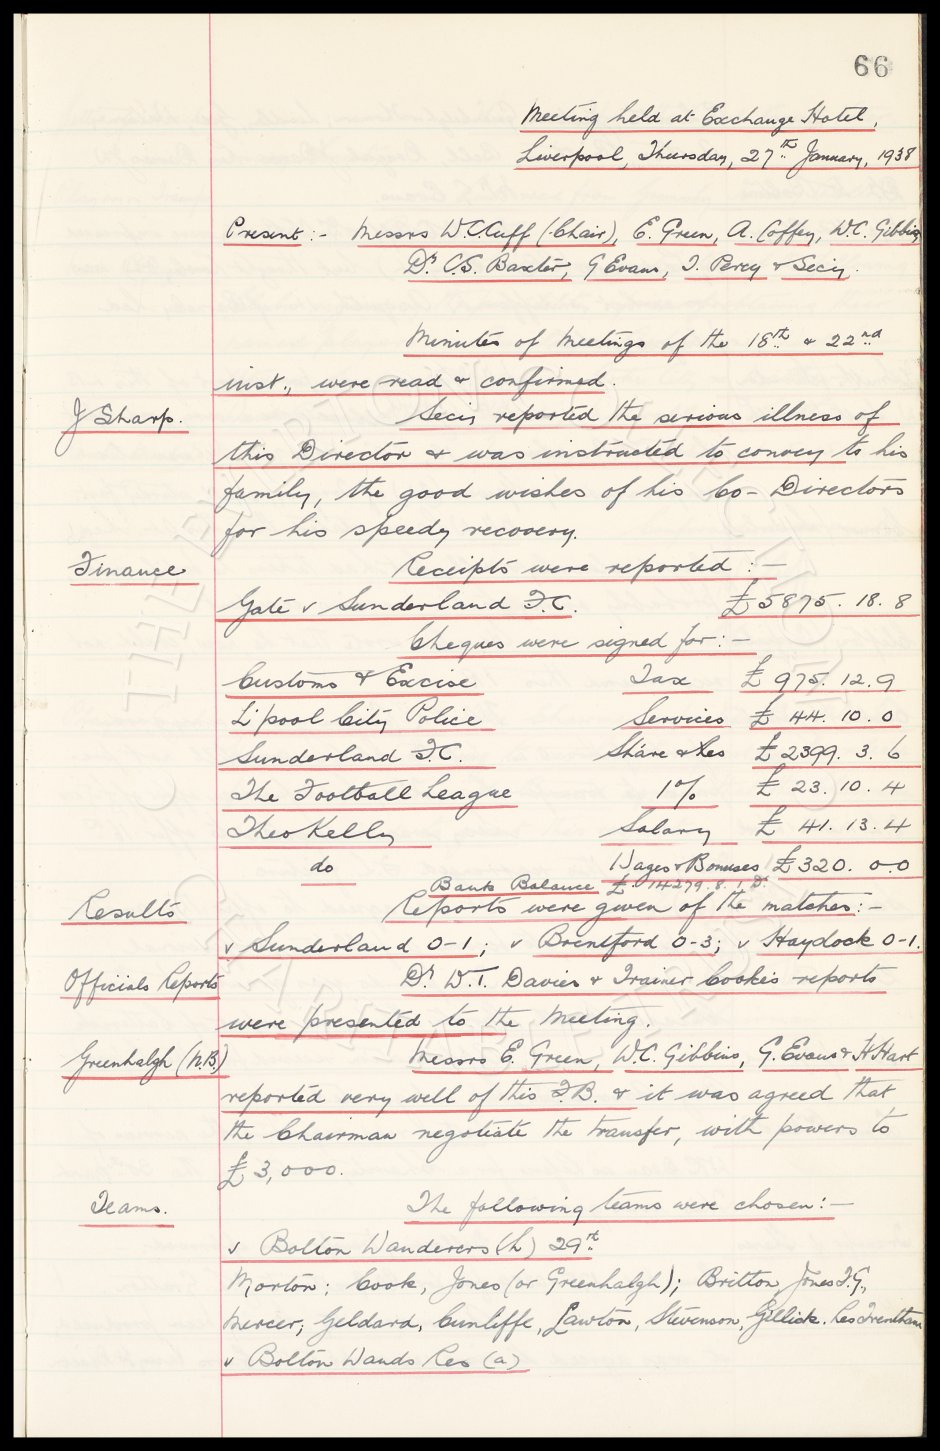 66
Meeting held at Exchange Hotel,
Liverpool, Thursday, 27th January, 1938
Present :- Messrs W.C. Cuff (Chair), E. Green, A. Coffey, W.C. Gibbins
Dr C.S. Baxter, G Evans, T. Percy & Secy.
Minutes of Meetings of the 18th & 22nd
inst., were read & confirmed.
J Sharp. Secy reported the serious illness of
this Director & was instructed to convey to his
family, the good wishes of his Co-Directors
for his speedy recovery.
Finance Receipts were reported :-
Gate v Sunderland F.C. £5875. 18. 8
Cheques were signed for:-
Customs & Excise Tax £ 975. 12. 9
L'pool City Police Services £ 44. 10. 0
Sunderland F.C. Share & Res £ 2399. 3. 6
The Football League 1% £ 23. 10. 4
Theo Kelly Salary £ 41. 13. 4
do Wages & Bonuses £320. 0.0
Bank Balance £ 14279. 8. 1. Dr
Results Reports were given of the matches:-
v Sunderland 0-1; v Brentford 0-3; v Haydock 0-1.
Officials Reports Dr W.T. Davies & Trainer Cooke's reports
were presented to the Meeting.
Greenhalgh (N.B.) Messrs E. Green, W.C. Gibbins, G. Evans & H Hart
reported very well of this F.B. & it was agreed that
the Chairman negotiate the transfer, with powers to
£3,000.
Teams. The following teams were chosen:-
v Bolton Wanderers (h) 29th
Morton; Cook, Jones (or Greenhalgh); Britton, Jones T.G.,
Mercer; Geldard, Cunliffe, Lawton, Stevenson, Gillick. Res Trentham
v Bolton Wands Res (a)